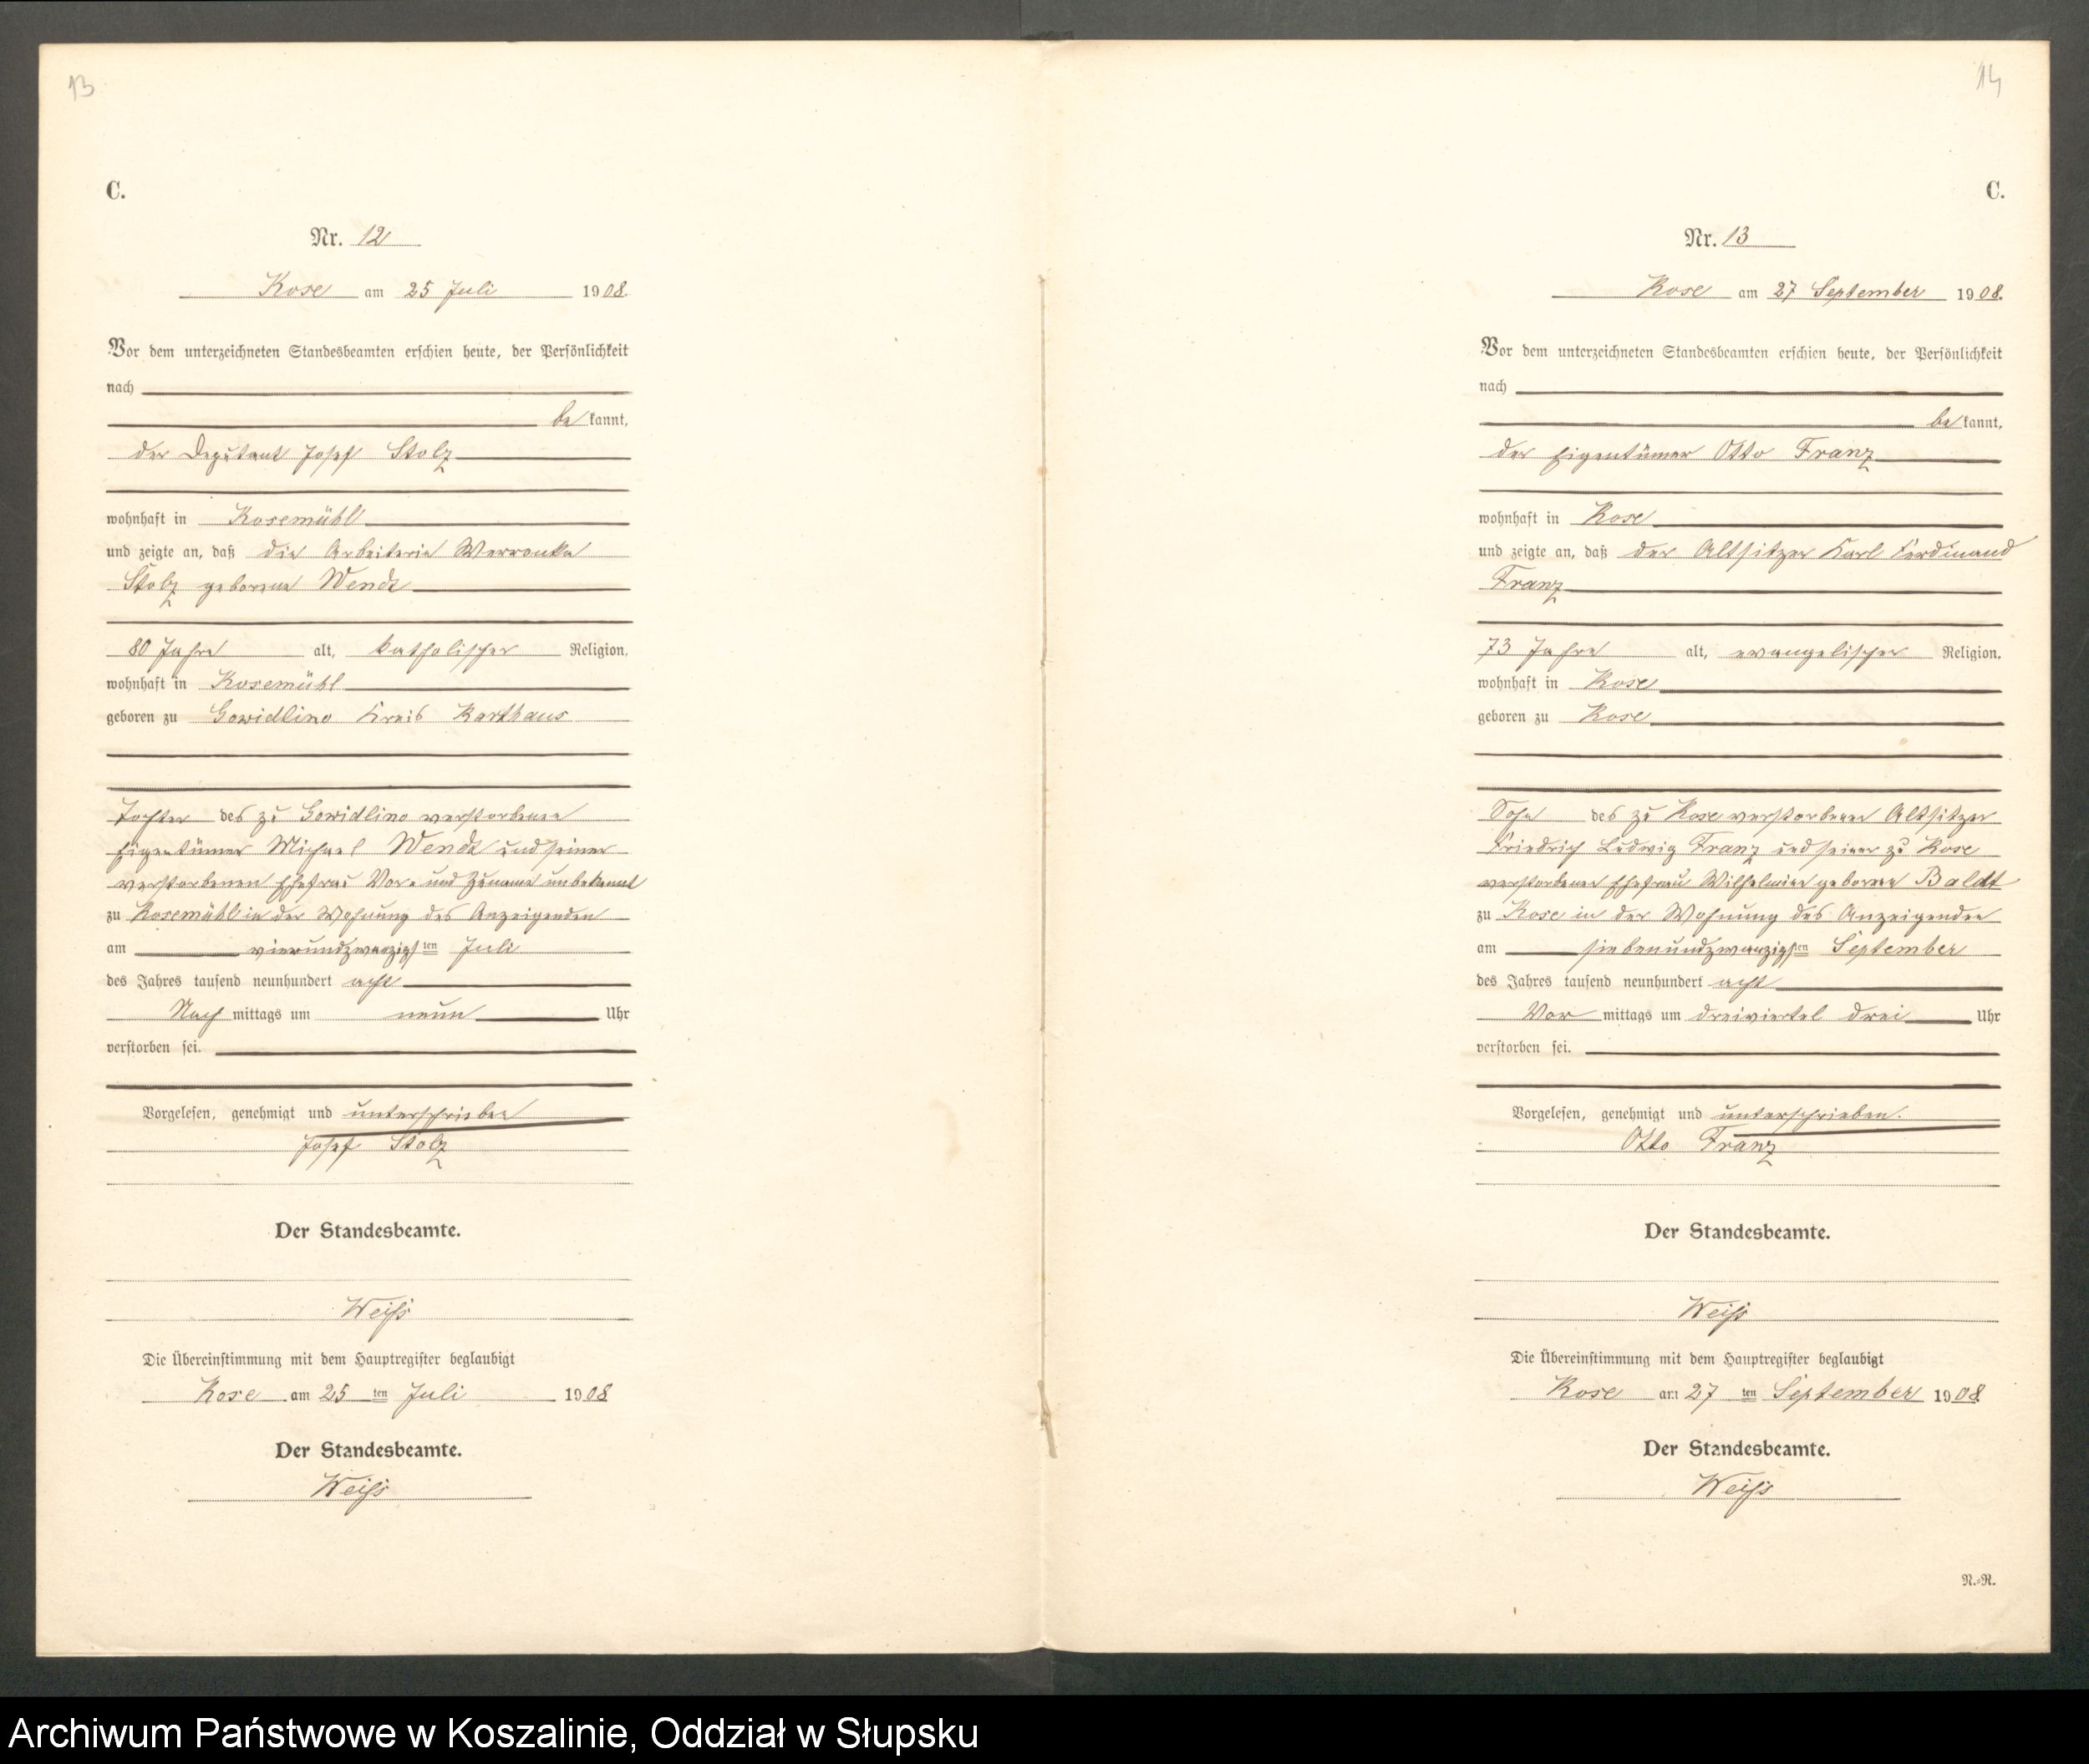 13
C.
Nr. 12
Rose am 25 Juli 1908.
Vor dem unterzeichneten Standesbeamten erschien heute, der Persönlichkeit
nach
be kannt,
der Deputant Josef Stolz
wohnhaft in Rosemühl
und zeigte an, daß die Arbeiterin Werronka
Stolz geborene Wendt
80 Jahre alt, katholischer Religion,
wohnhaft in Rosemühl
geboren zu Gowidlino Kreis Karthaus
Tochter des zu Gowidlino verstorbenen
Eigentümer Michael Wendt und seiner
verstorbenen Ehefrau Vor- und Zuname unbekannt
zu Rosemühl in der Wohnung des Anzeigenden
am vierundzwanzigsten Juli
des Jahres tausend neunhundert acht
Nach mittags um neun Uhr
verstorben sei.
Vorgelesen, genehmigt und unterschrieben
Josef Stolz
Der Standesbeamte.
Weiß
Die Übereinstimmung mit dem Hauptregister beglaubigt
Rose am 25 ten Juli 1908
Der Standesbeamte.
Weiß
14
C.
Nr. 13
Rose am 27 September 1908.
Vor dem unterzeichneten Standesbeamten erschien heute, der Persönlichkeit
nach
be kannt,
der Eigentümer Otto Franz
wohnhaft in Rose
und zeigte an, daß der Altsitzer Karl Ferdinand
Franz
73 Jahre alt, evangelischer Religion,
wohnhaft in Rose
geboren zu Rose
Sohn des zu Rose verstorbenen Altsitzer
Friedrich Ludwig Franz und seiner zu Rose
verstorbenen Ehefrau Wilhelmine geborene Baldt
zu Rose in der Wohnung des Anzeigenden
am siebenundzwanzigsten September
des Jahres tausend neunhundert acht
Vor mittags um dreiviertel drei Uhr
verstorben sei.
Vorgelesen, genehmigt und unterschrieben.
Otto Franz
Der Standesbeamte.
Weiß
Die Übereinstimmung mit dem Hauptregister beglaubigt
Rose am 27 ten September 1908
Der Standesbeamte.
Weiß
N.-R.
Archiwum Państwowe w Koszalinie, Oddział w Słupsku